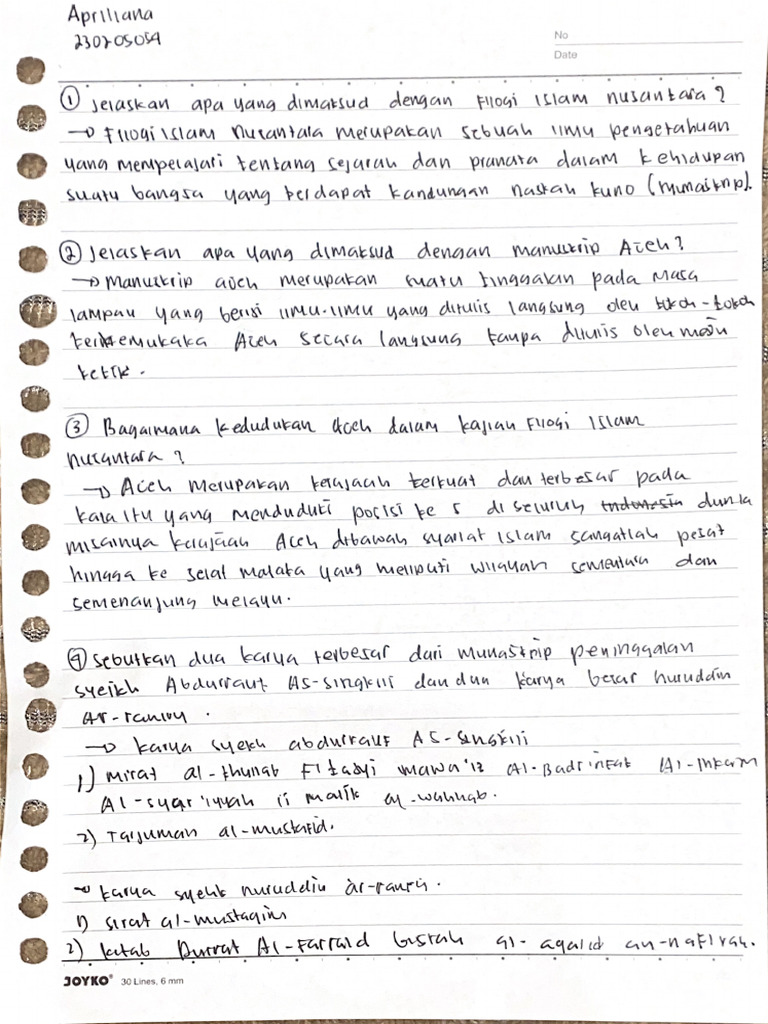 Apriliana
230205054
No
Date
① Jelaskan apa yang dimaksud dengan Filogi Islam nusantara ?
→ Filogi Islam Nusantara merupakan sebuah ilmu pengetahuan
yang mempelajari tentang sejarah dan pranata dalam kehidupan
suatu bangsa yang terdapat kandungan naskah kuno (munaskrip).
② Jelaskan apa yang dimaksud dengan manuskrip Aceh ?
→ Manuskrip aceh merupakan suatu tinggalan pada masa
lampau yang berisi ilmu-ilmu yang ditulis langsung oleh tokoh-tokoh
terkemukaka Aceh secara langsung tanpa ditulis oleh
ketik.
③ Bagaimana kedudukan Aceh dalam kajian Filogi Islam
nusantara ?
→ Aceh merupakan kerajaan terkuat dan terbesar pada
kala itu yang menduduki posisi ke 5 di seluruh Indonesia dunia
misalnya kerajaan Aceh dibawah syariat Islam sangatlah pesat
hingga ke selat malaka yang meliputi wilayah sementara dan
semenanjung melayu.
④ Sebutkan dua karya terbesar dari munaskrip peninggalan
syeikh Abdurrauf As-singkili dan dua karya besar nuruddin
Ar-raniry .
→ karya syekh abdurrauf AS-Singkili
1) Mirat al-thunab Fi tasyi mawa'iz Al-Badrifat Al-Ahkam
Al-syar'iyyah li malik al-wahhab.
2) Tarjuman al-mustafid.
→ karya syekh nuruddin ar-raniri.
1) sirat al-mustaqim
2) kitab Durrat Al-Farraid bisrah al-aqaid an-nafirah.
JOYKO® 30 Lines, 6 mm